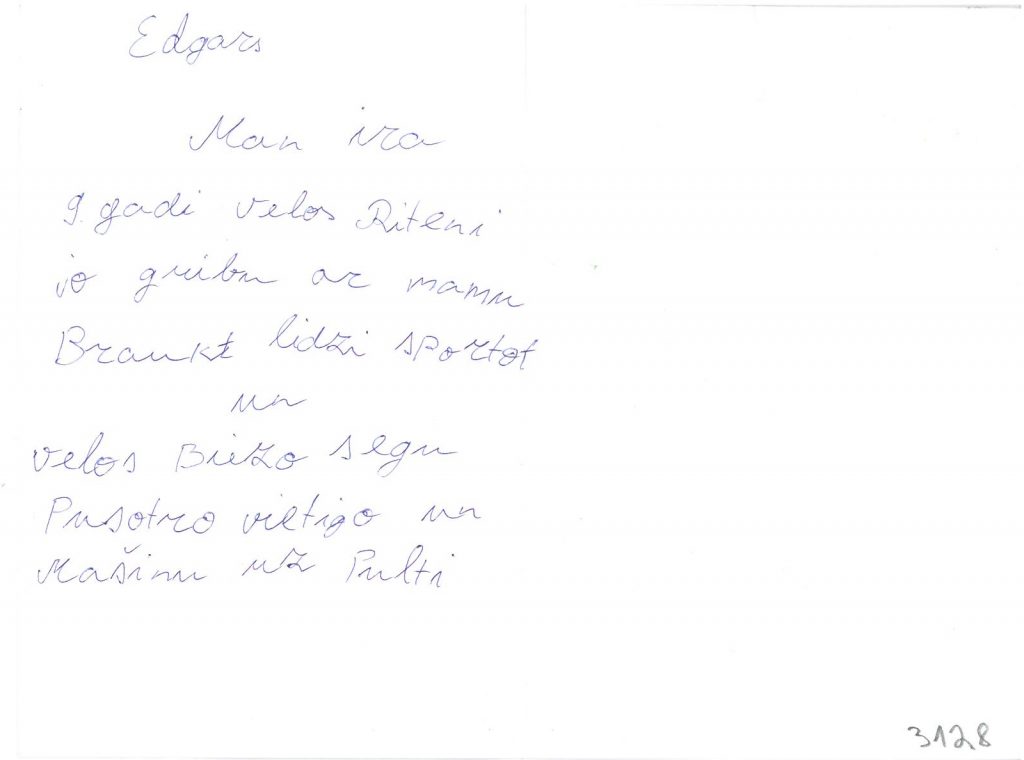 Edgars
Man ira
9. gadi velos Riteni
jo gribu ar mamu
Braukt lidzi sportot
un
velos Biezo segu
Pusotro vietigo un
Mašinu uz Pulti
3128